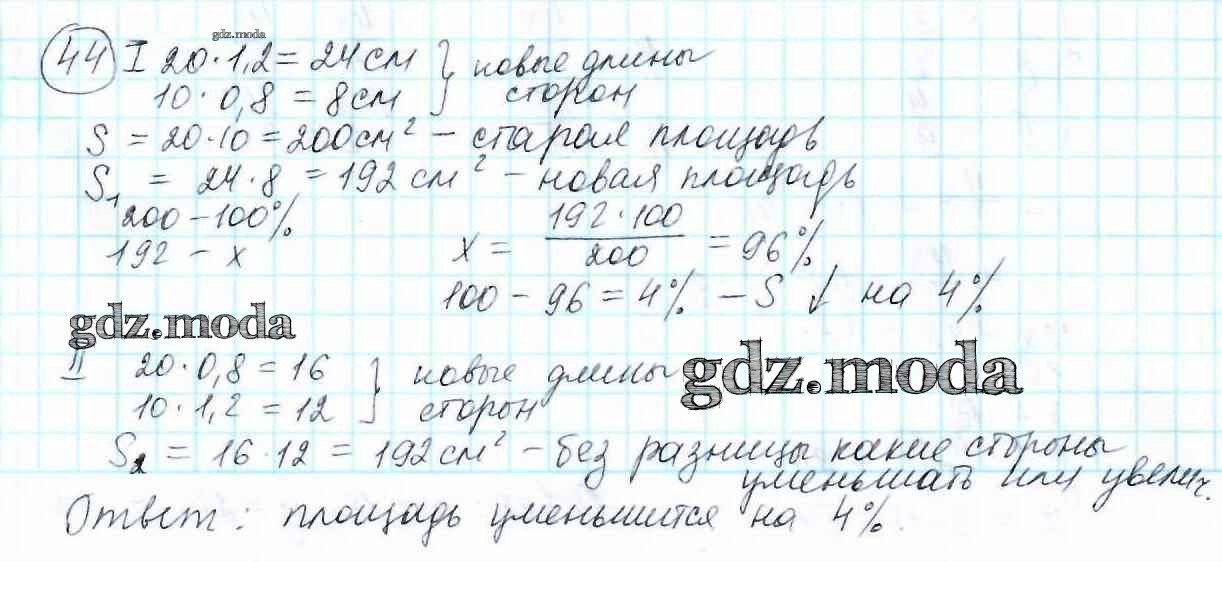 gdz.moda
44 I 20·1,2 = 24 см } новые длины
10·0,8 = 8 см } сторон
S = 20·10 = 200 см² – старая площадь
S₁ = 24·8 = 192 см² – новая площадь
200 – 100%
192 – x x = 192·100/200 = 96%
100 – 96 = 4% – S ↓ на 4%
gdz.moda
gdz.moda
II 20·0,8 = 16 } новые длины
10·1,2 = 12 } сторон
S₂ = 16·12 = 192 см² – без разницы какие стороны
уменьшать или увелич.
Ответ: площадь уменьшится на 4%.